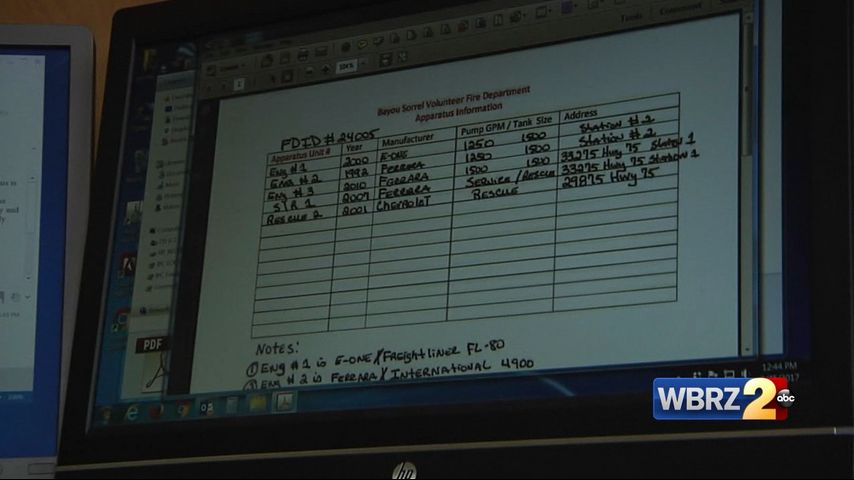 Tools
Comment
1
104%
Bayou Sorrel Volunteer Fire Department
Apparatus Information
FDID # 24005
Apparatus Unit # Year Manufacturer Pump GPM / Tank Size Address
Eng #1 2000 E-ONE 1250 1500 Station # 2
Eng # 2 1992 FERRARA 1250 1500 Station # 2
Eng # 3 2010 FERRARA 1500 1500 33275 Hwy 75 Station 1
2007 FERRARA Service / Rescue 33275 Hwy 75 Station 1
RESCUE 2 2001 CHEVROLET RESCUE 29875 Hwy 75
Notes:
① Eng # 1 is E-ONE / Freightliner FL-80
② Eng # 2 is FERRARA / INTERNATIONAL 4900
PDF
12:44 PM
hp
WBRZ 2 abc